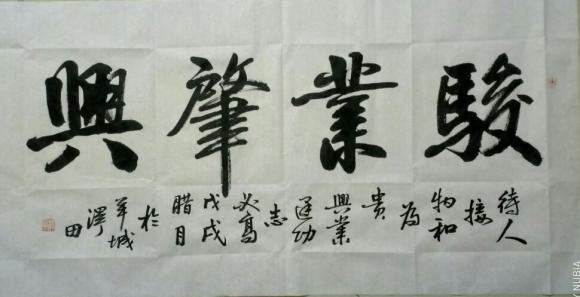 駿業肇興
待人
接
物和
為
貴
興業
建功
志
必高
戊戌
腊月
於
羊城
澤
田
NUBIA